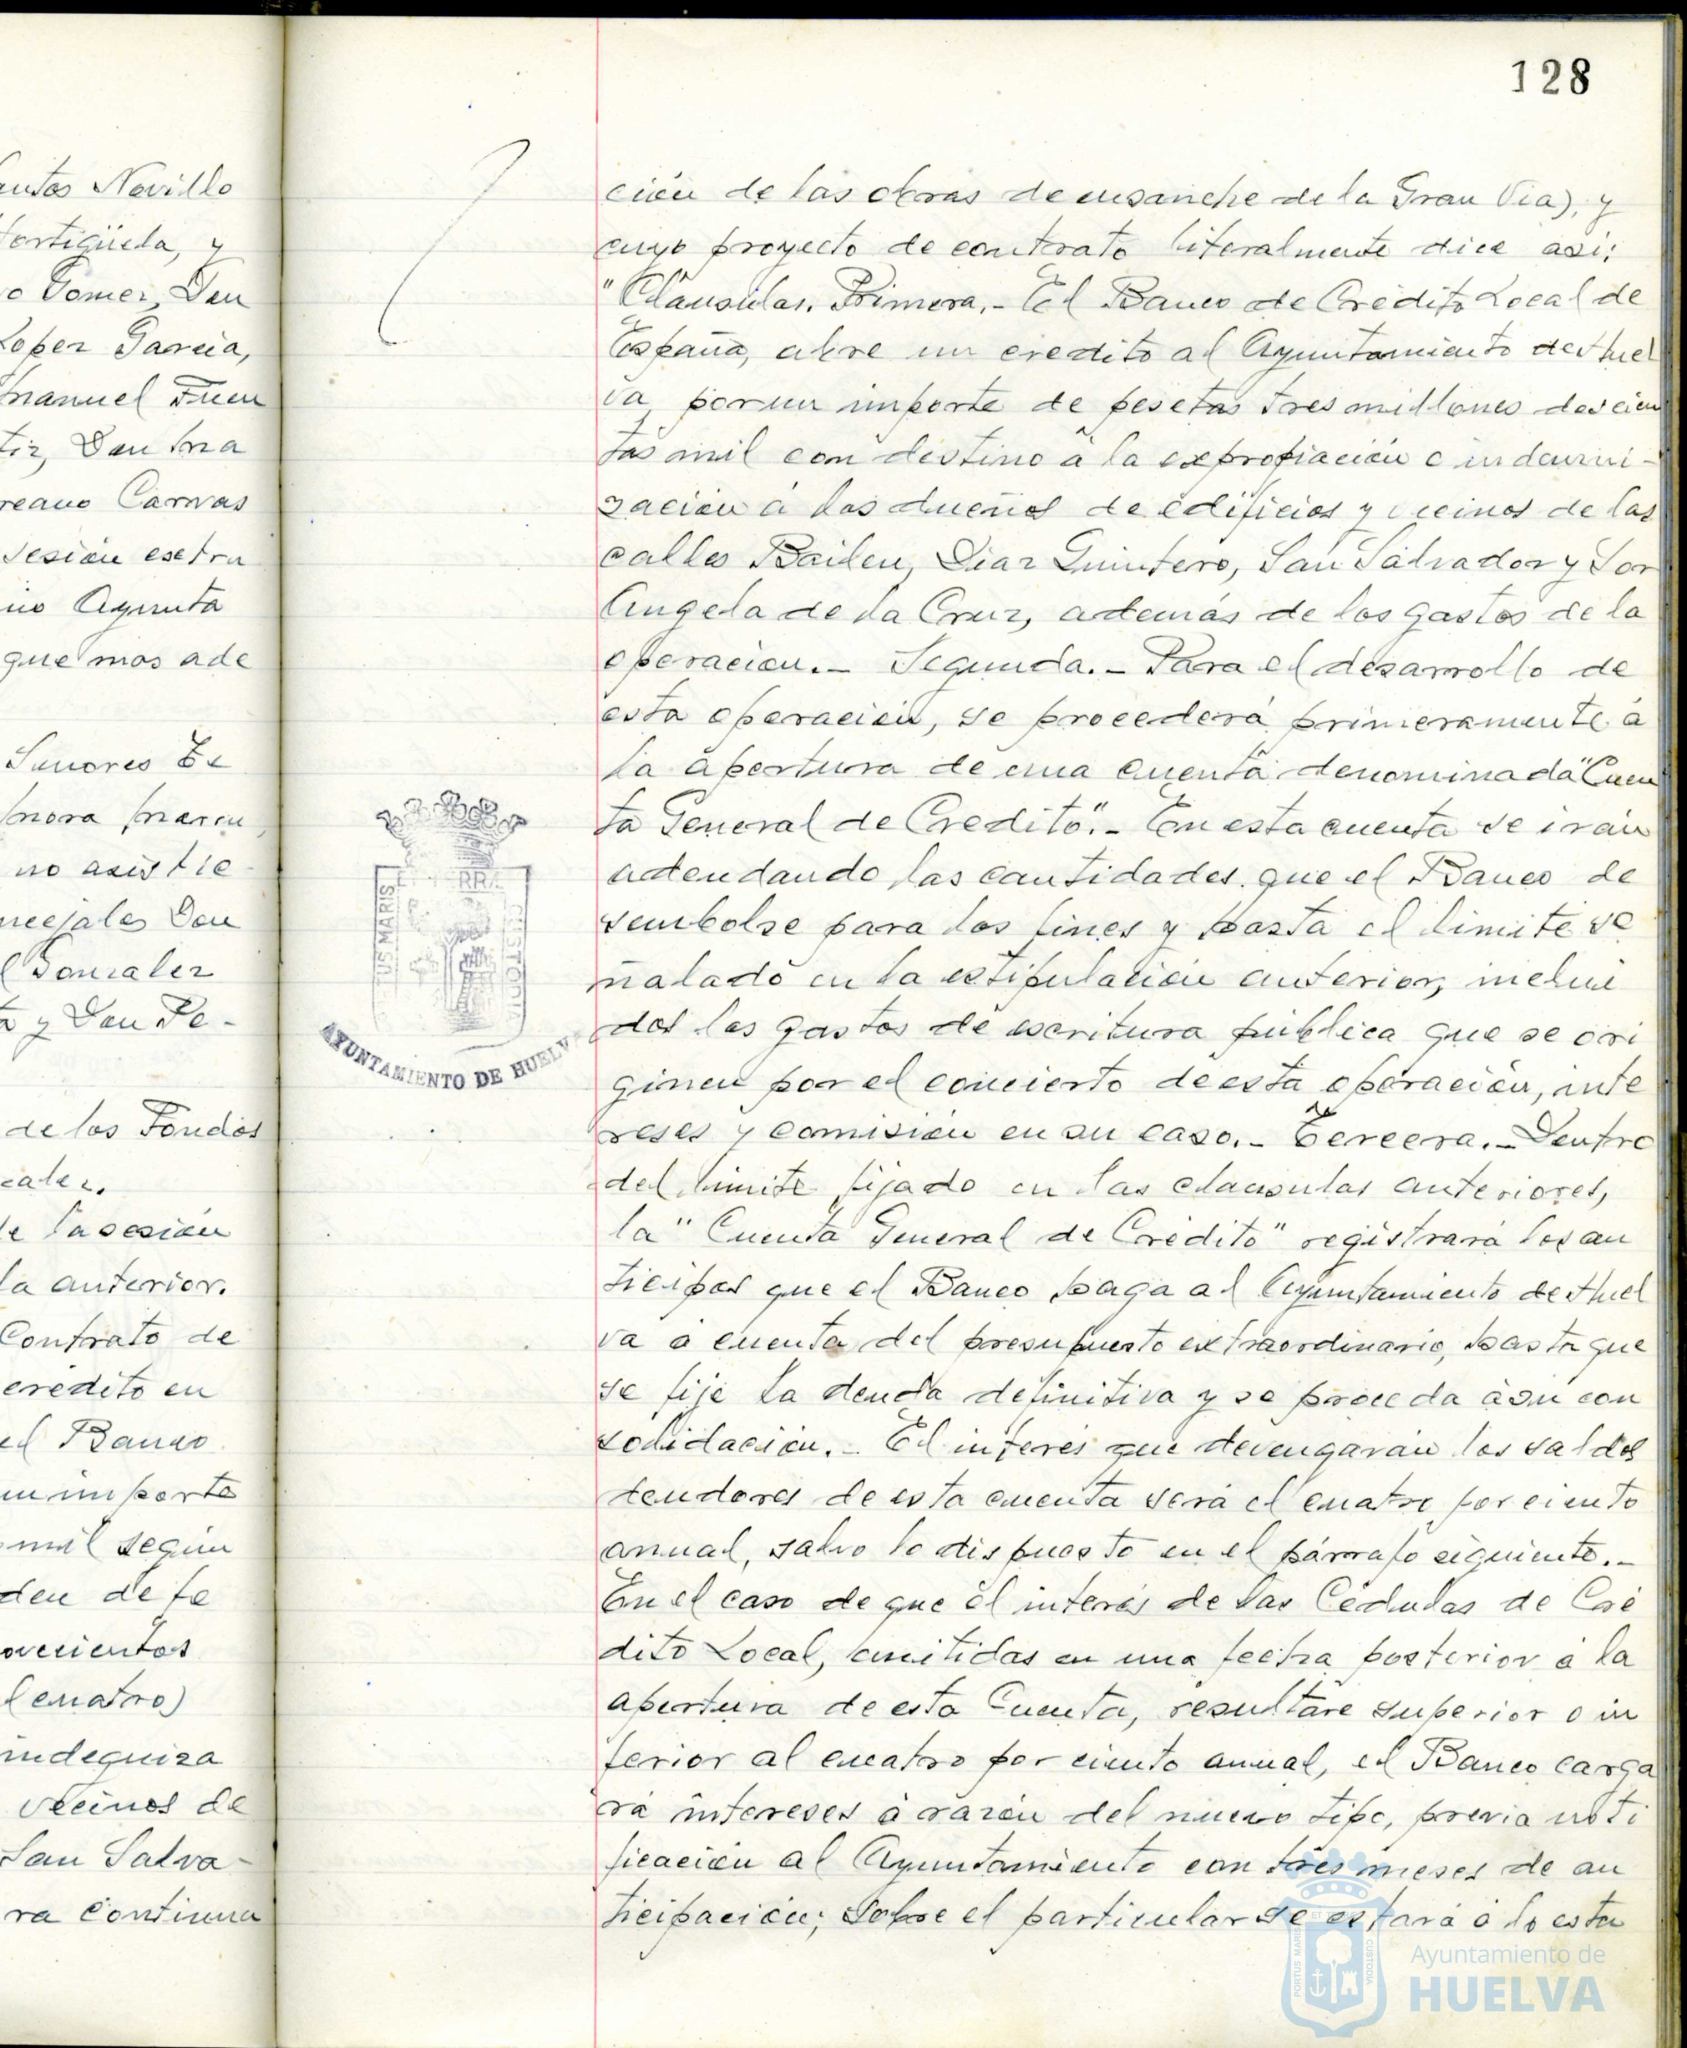 128
antos Novillo
Hortigüela, y
o Gomez, Don
Lopez Garcia,
Manuel Fuen
tiz, Don Ma
reano Carvas
sesión extra
mo Ayunta
que mas ade
Señores Te
Mora Marin,
no asistie
ncejales Don
l Gonzalez
ta y Don Pe-
de los Fondos
cales.
de la sesión
la anterior.
Contrato de
credito en
el Banco
un importe
mil según
den de fe
ovecientos
l cuatro)
indegniza
vecinos de
San Salva-
ra continua
ción de las obras de ensanche de la Gran Via), y
cuyo proyecto de contrato literalmente dice asi:
"Cláusulas. Primera.- El Banco de Crédito Local de
España, abre un credito al Ayuntamiento de Huel
va, por un importe de pesetas tres millones doscien
tas mil con destino á la expropiación e indemni-
zación á los dueños de edificios y vecinos de las
calles Bailen, Diaz Quintero, San Salvador y Sor
Angela de la Cruz, además de los gastos de la
operacion.- Segunda.- Para el desarrollo de
esta operación, se procederá primeramente á
la apertura de una cuenta denominada "Cuen
ta General de Credito".- En esta cuenta se irán
adeudando las cantidades que el Banco de
sembolse para los fines y hasta el limite se
ñalado en la estipulación anterior, inclui
dos los gastos de escritura pública que se ori
ginen por el concierto de esta operación, inte
reses y comisión en su caso.- Tercera.- Dentro
del limite fijado en las clausulas anteriores,
la "Cuenta General de Crédito" registrará los an
ticipos que el Banco haga al Ayuntamiento de Huel
va á cuenta del presupuesto extraordinario, hasta que
se fije la deuda definitiva y se proceda á su con
solidación.- El interés que devengarán los saldos
deudores de esta cuenta será el cuatro por ciento
anual, salvo lo dispuesto en el párrafo siguiente.-
En el caso de que el interés de las Cédulas de Cré
dito Local, emitidas en una fecha posterior á la
apertura de esta Cuenta, resultare superior o in
ferior al cuatro por ciento anual, el Banco carga
rá intereses á razón del nuevo tipo, previa noti
ficación al Ayuntamiento con tres meses de an
ticipación; sobre el particular se estará á lo esta
TUS MARIS
RRA
CUSTODI
AYUNTAMIENTO DE HUELVA
PORTUS MARIS
ET
CUSTODIA
Ayuntamiento de
HUELVA